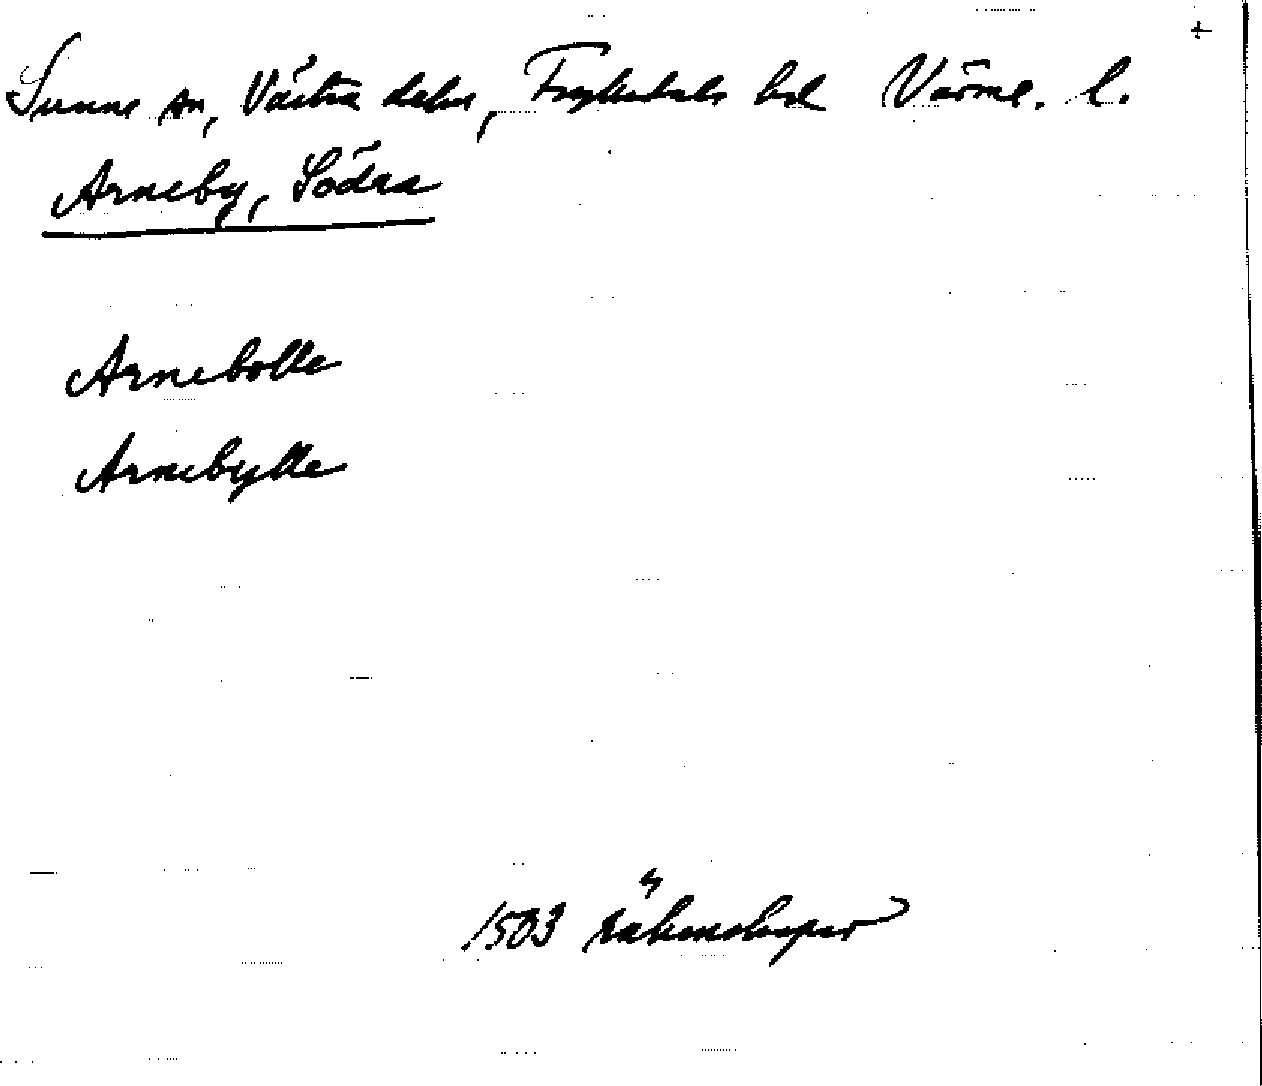 +
Sunne sn, Västra delen, Fryksdals hd Värml. l.
Arneby, Södra
Arnebolle
Arnebylle
1503 räkenskaper